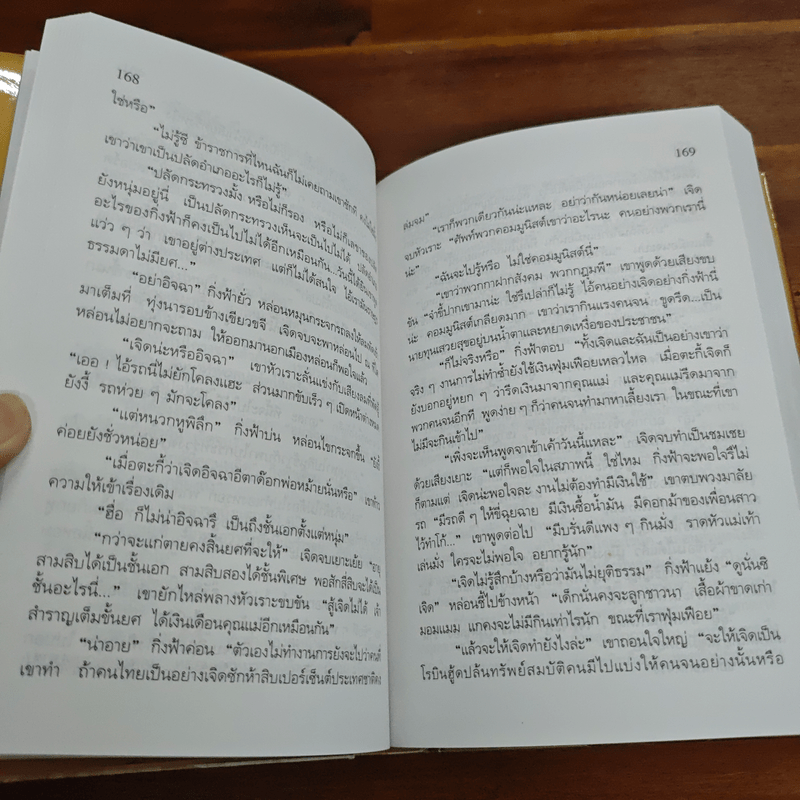 168
ใช่หรือ”
“ไม่รู้ซี ข้าราชการที่ไหนฉันก็ไม่เคยถามเขาซักที
เขาว่าเขาเป็นปลัดอำเภออะไรก็ไม่รู้”
“ปลัดกระทรวงมั้ง หรือไม่ก็รอง หรือไม่ก็
ยังหนุ่มอยู่นี่ เป็นปลัดกระทรวงเห็นจะเป็นไปไม่ได้
อะไรของกิ่งฟ้าก็คงเป็นไปไม่ได้อีกเหมือนกัน...วันนี้ได้ยิน
แว่ว ๆ ว่า เขาอยู่ต่างประเทศ แต่ก็ไม่ได้สนใจ
ธรรมดาไม่มียศ...”
“อย่าอิจฉา” กิ่งฟ้ายั่ว หล่อนหมุนกระจกรถลงให้ลม
มาเต็มที่ ทุ่งนารอบข้างเขียวขจี เจิดจบจะพาหล่อนไป
หล่อนไม่อยากจะถาม ให้ออกมานอกเมืองหล่อนก็พอใจแล้ว
“เจิดน่ะหรืออิจฉา” เขาหัวเราะลั่นแข่งกับเสียงลม
“เออ ! ไอ้รถนี่ไม่ยักโคลงแฮะ ส่วนมากขับเร็ว ๆ เปิดหน้าต่าง
ยังงี้ รถห่วย ๆ มักจะโคลง”
“แต่หนวกหูพิลึก” กิ่งฟ้าบ่น หล่อนไขกระจกขึ้น
ค่อยยังชั่วหน่อย”
“เมื่อตะกี้ว่าเจิดอิจฉาอีตาด๊อกพ่อหม้ายนั่นหรือ”
ความให้เข้าเรื่องเดิม
“ฮื่อ ก็ไม่น่าอิจฉารึ เป็นถึงชั้นเอกตั้งแต่หนุ่ม”
“กว่าจะแก่ตายคงสิ้นยศที่จะให้” เจิดจบเยาะเย้ย
สามสิบได้เป็นชั้นเอก สามสิบสองได้ชั้นพิเศษ พอสักสี่สิบจะได้เป็น
ชั้นอะไรนี่...” เขายักไหล่พลางหัวเราะขบขัน “สู้เจิดไม่ได้
สำราญเต็มขั้นยศ ได้เงินเดือนคุณแม่อีกเหมือนกัน”
“น่าอาย” กิ่งฟ้าค่อน “ตัวเองไม่ทำงานการยังจะไปว่าคนที่
เขาทำ ถ้าคนไทยเป็นอย่างเจิดซักห้าสิบเปอร์เซ็นต์ประเทศชาติคง
169
ล่มจม”
“เราก็พวกเดียวกันน่ะแหละ อย่าว่ากันหน่อยเลยน่า” เจิด
จบหัวเราะ “ศัพท์พวกคอมมูนิสต์เขาว่าอะไรนะ คนอย่างพวกเรานี่
น่ะ”
“ฉันจะไปรู้หรือ ไม่ใช่คอมมูนิสต์นี่”
“เขาว่าพวกกาฝากสังคม พวกกฎุมพี” เขาพูดด้วยเสียงขบ
ขัน “จำขี้ปากเขามาน่ะ ใช่รึเปล่าก็ไม่รู้ ไอ้คนอย่างเจิดอย่างกิ่งฟ้านี่
น่ะ คอมมูนิสต์เกลียดมาก เขาว่าเรากินแรงคนจน ขูดรีด...เป็น
นายทุนเสวยสุขอยู่บนน้ำตาและหยาดเหงื่อของประชาชน”
“ก็ไม่จริงหรือ” กิ่งฟ้าตอบ “ทั้งเจิดและฉันเป็นอย่างเขาว่า
จริง ๆ งานการไม่ทำซ้ำยังใช้เงินฟุ่มเฟือยเหลวไหล เมื่อตะกี้เจิดก็
ยังบอกอยู่หยก ๆ ว่ารีดเงินมาจากคุณแม่ และคุณแม่รีดมาจาก
พวกคนจนอีกที พูดง่าย ๆ ก็ว่าคนจนทำมาหาเลี้ยงเรา ในขณะที่เขา
ไม่มีจะกินเข้าไป”
“เพิ่งจะเห็นพูดจาเข้าเค้าวันนี้แหละ” เจิดจบทำเป็นชมเชย
ด้วยเสียงเยาะ “แต่ก็พอใจในสภาพนี้ ใช่ไหม กิ่งฟ้าจะพอใจรึไม่
ก็ตามแต่ เจิดน่ะพอใจละ งานไม่ต้องทำมีเงินใช้” เขาตบพวงมาลัย
รถ “มีรถดี ๆ ให้ขี่ฉุยฉาย มีเงินซื้อน้ำมัน มีคอกม้าของเพื่อนสาว
ไว้ทำโก้...” เขาพูดต่อไป “มีบรั่นดีแพง ๆ กินมั่ง ราดหัวแม่เท้า
เล่นมั่ง ใครจะไม่พอใจ อยากรู้นัก”
“เจิดไม่รู้สึกบ้างหรือว่ามันไม่ยุติธรรม” กิ่งฟ้าแย้ง “ดูนั่นซิ
เจิด” หล่อนชี้ไปข้างหน้า “เด็กนั่นคงจะลูกชาวนา เสื้อผ้าขาดเก่า
มอมแมม แกคงจะไม่มีกินเท่าไรนัก ขณะที่เราฟุ่มเฟือย”
“แล้วจะให้เจิดทำยังไงล่ะ” เขาถอนใจใหญ่ “จะให้เจิดเป็น
โรบินฮู้ดปล้นทรัพย์สมบัติคนมีไปแบ่งให้คนจนอย่างนั้นหรือ